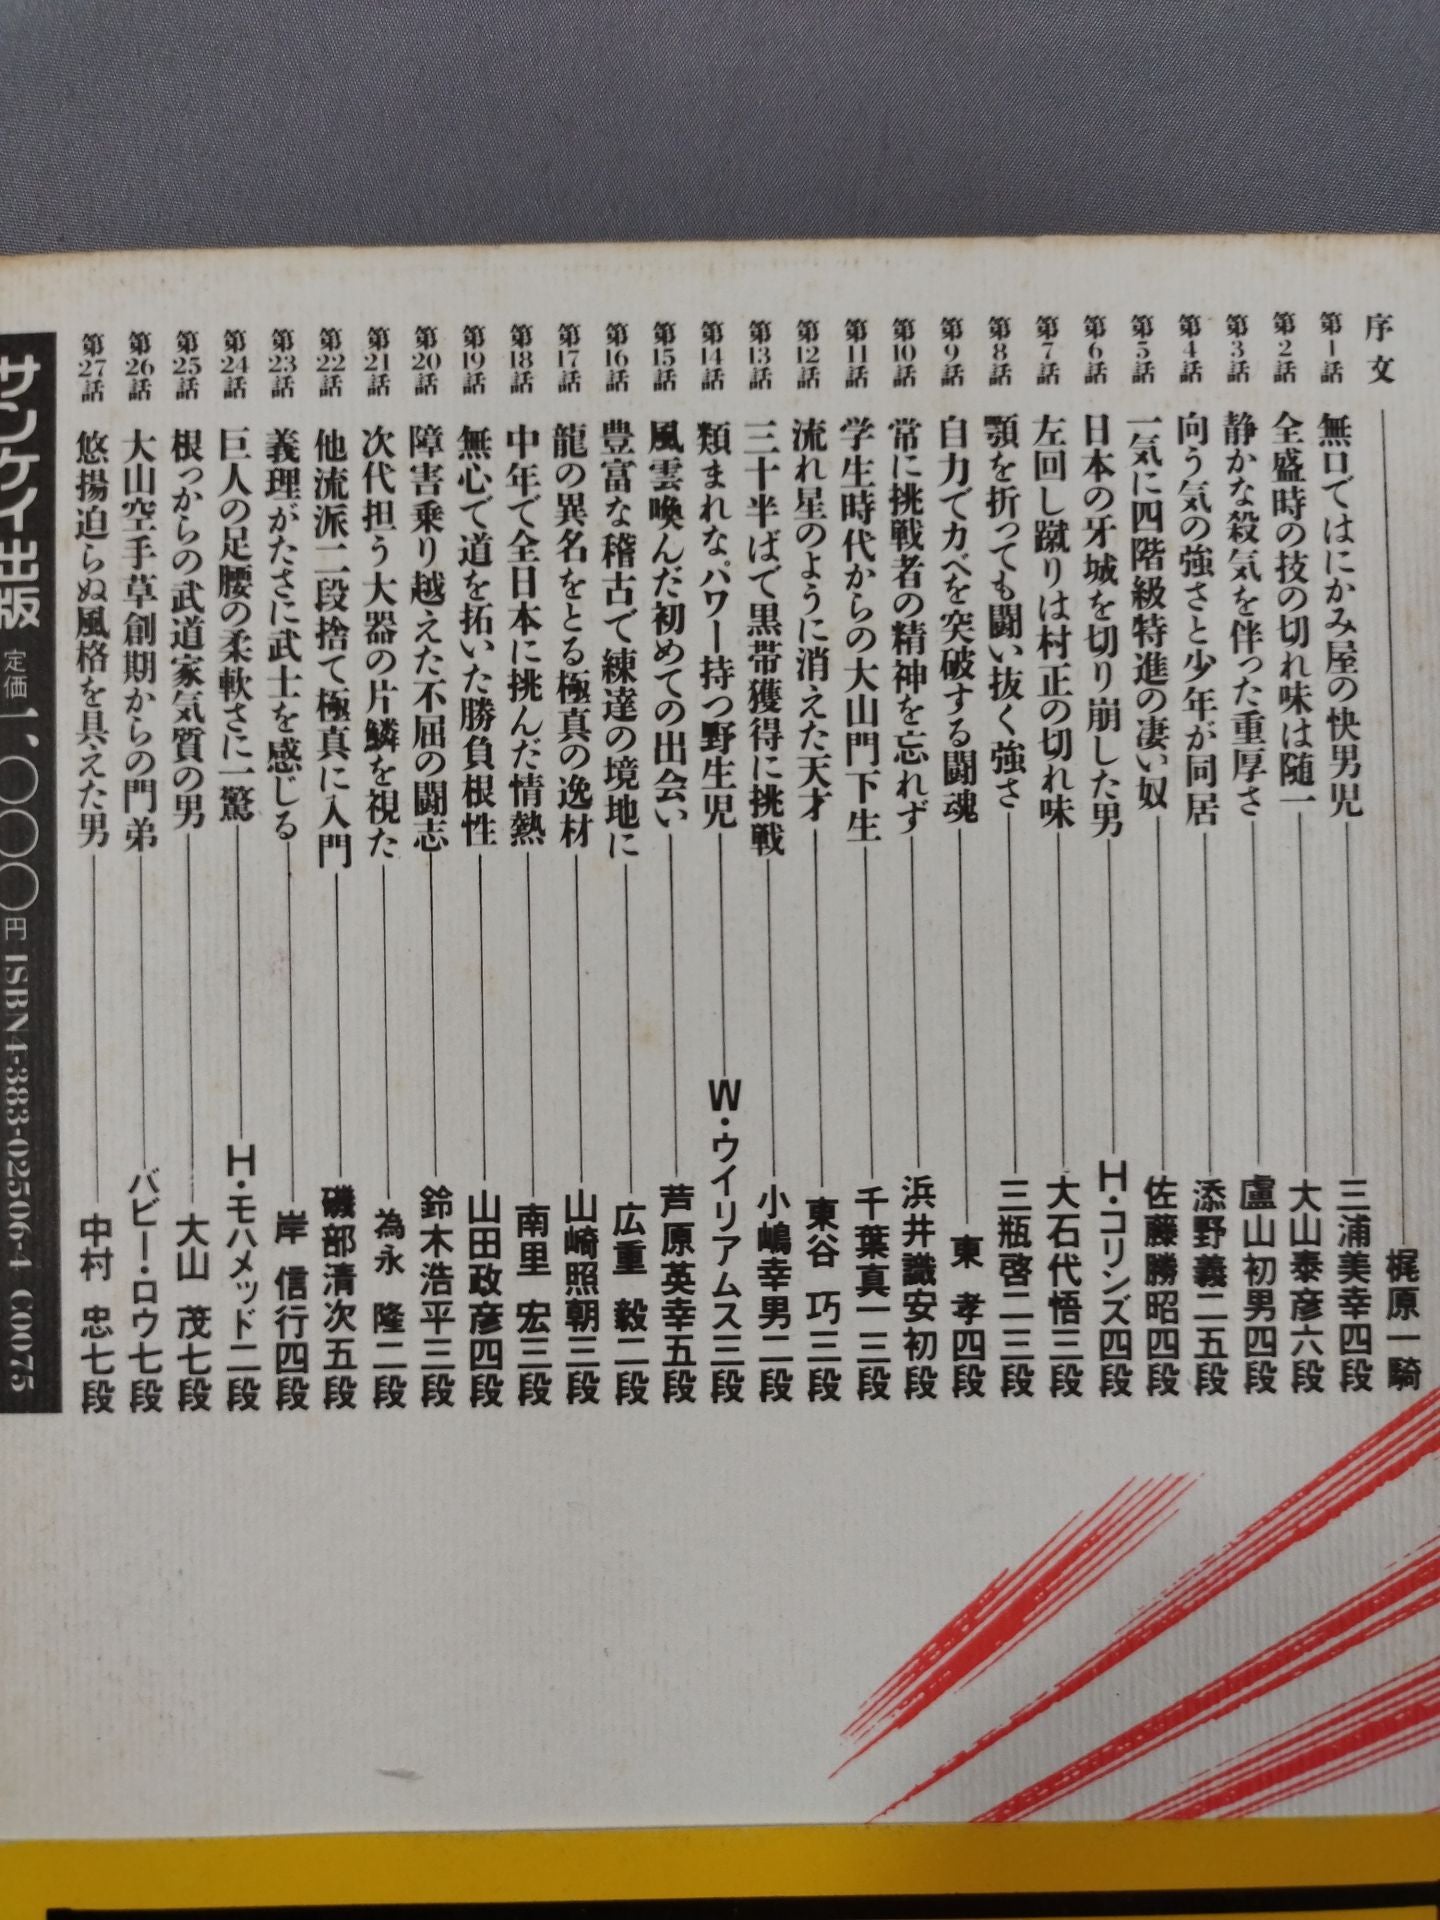 序文 梶原一騎
第1話 無口ではにかみ屋の快男児 三浦美幸四段
第2話 全盛時の技の切れ味は随一 大山泰彦六段
第3話 静かな殺気を伴った重厚さ 盧山初男四段
第4話 向う気の強さと少年が同居 添野義二五段
第5話 一気に四階級特進の凄い奴 佐藤勝昭四段
第6話 日本の牙城を切り崩した男 H・コリンズ四段
第7話 左回し蹴りは村正の切れ味 大石代悟三段
第8話 顎を折っても闘い抜く強さ 三瓶啓二三段
第9話 自力でカベを突破する闘魂 東孝四段
第10話 常に挑戦者の精神を忘れず 浜井識安初段
第11話 学生時代からの大山門下生 千葉真一三段
第12話 流れ星のように消えた天才 東谷巧三段
第13話 三十半ばで黒帯獲得に挑戦 小嶋幸男二段
第14話 類まれなパワー持つ野生児 W・ウイリアムス三段
第15話 風雲喚んだ初めての出会い 芦原英幸五段
第16話 豊富な稽古で練達の境地に 広重毅二段
第17話 龍の異名をとる極真の逸材 山崎照朝三段
第18話 中年で全日本に挑んだ情熱 南里宏三段
第19話 無心で道を拓いた勝負根性 山田政彦四段
第20話 障害乗り越えた不屈の闘志 鈴木浩平三段
第21話 次代担う大器の片鱗を視た 為永隆二段
第22話 他流派二段捨て極真に入門 磯部清次五段
第23話 義理がたさに武士を感じる 岸信行四段
第24話 巨人の足腰の柔軟さに一驚 H・モハメッド二段
第25話 根っからの武道家気質の男 大山茂七段
第26話 大山空手草創期からの門弟 バビー・ロウ七段
第27話 悠揚迫らぬ風格を具えた男 中村忠七段
サンケイ出版 定価一、〇〇〇円 ISBN4-383-02506-1 C0075